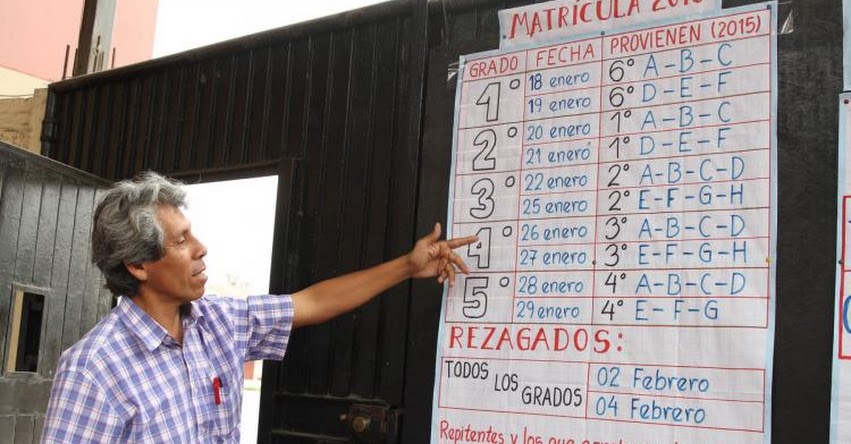 MATRÍCULA
GRADO FECHA PROVIENEN (2015)
1° 18 enero 6° A-B-C
19 enero 6° D-E-F
2° 20 enero 1° A-B-C
21 eneró 1° D-E-F
3° 22 enero 2° A-B-C-D
25 enero 2° E-F-G-H
4° 26 enero 3° A-B-C-D
27 enero 3° E-F-G-H
5° 28 enero 4° A-B-C-D
29 enero 4° E-F-G
REZAGADOS:
TODOS LOS GRADOS 02 Febrero
04 Febrero
Repitentes y los que